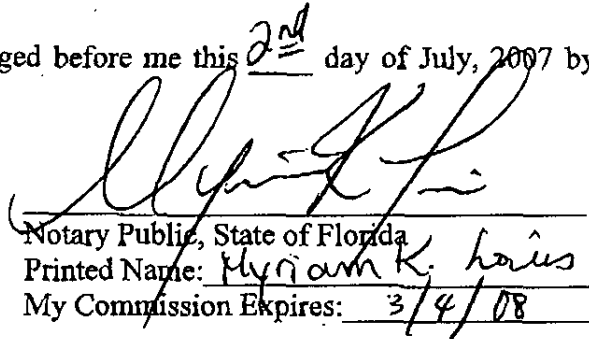 ged before me this 2nd day of July, 2007 by
Notary Public, State of Florida
Printed Name: Myriam K. Louis
My Commission Expires: 3/4/08